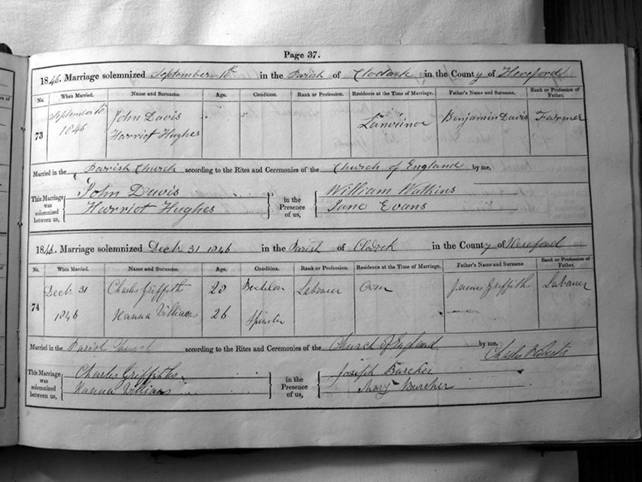 Page 37.
1846. Marriage solemnized September 10th in the Parish of Clodack in the County of Hereford
No. When Married. Name and Surname. Age. Condition. Rank or Profession. Residence at the Time of Marriage. Father's Name and Surname. Rank or Profession of Father.
73 September 10 1846 John Davis Benjamin Davis Farmer
Harriot Hughes
Married in the Parish Church according to the Rites and Ceremonies of the Church of England by me,
This Marriage was solemnized between us, John Davis in the Presence of us, William Watkins
Harriot Hughes Jane Evans
1846. Marriage solemnized Decbr 31 1846 in the Parish of Clodock in the County of Hereford
No. When Married. Name and Surname. Age. Condition. Rank or Profession. Residence at the Time of Marriage. Father's Name and Surname Rank or Profession of Father.
74 Decbr 31 Charles Griffiths 20 Bachelor Labourer James Griffiths Labourer
1846 Hanna Williams 26 Spinster
Married in the Parish Church according to the Rites and Ceremonies of the Church of England by me,
This Marriage was solemnized between us, Charles Griffiths in the Presence of us, Joseph Burcher
Hanna Williams Mary Burcher